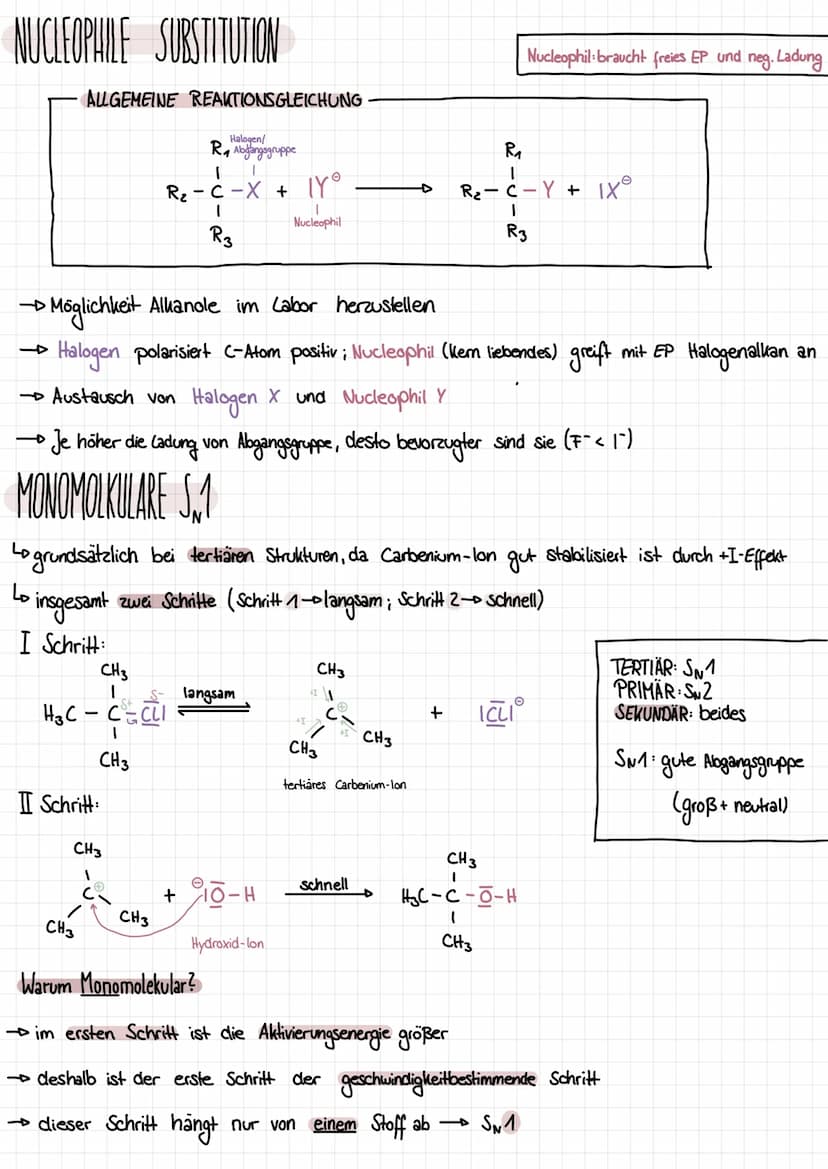 NUCLEOPHILE SUBSTITUTION
Nucleophil: braucht freies EP und neg. Ladung
ALLGEMEINE REAKTIONSGLEICHUNG
Halogen/
R1 Abgangsgruppe R1
R2 - C - X + IY⊖ → R2 - C - Y + IX⊖
Nucleophil
R3 R3
→ Möglichkeit Alkanole im Labor herzustellen
→ Halogen polarisiert C-Atom positiv; Nucleophil (Kern liebendes) greift mit EP Halogenalkan an
→ Austausch von Halogen X und Nucleophil Y
→ Je höher die Ladung von Abgangsgruppe, desto bevorzugter sind sie (F⁻ < I⁻)
MONOMOLKULARE SN1
↳ grundsätzlich bei tertiären Strukturen, da Carbenium-Ion gut stabilisiert ist durch +I-Effekt
↳ insgesamt zwei Schritte (Schritt 1 → langsam; Schritt 2 → schnell)
I Schritt:
CH3 CH3
δ+ δ- langsam +I
H3C - C - CLI ⇌ C⊕ + ICLI⊖
+I +I
CH3 CH3 CH3
tertiäres Carbenium-Ion
TERTIÄR: SN1
PRIMÄR: SN2
SEKUNDÄR: beides
SN1: gute Abgangsgruppe
(groß + neutral)
II Schritt:
CH3 CH3
C⊕ + ⊖IO-H schnell → H3C - C - O - H
CH3 CH3 CH3
Hydroxid-Ion
Warum Monomolekular?
→ im ersten Schritt ist die Aktivierungsenergie größer
→ deshalb ist der erste Schritt der geschwindigkeitbestimmende Schritt
→ dieser Schritt hängt nur von einem Stoff ab → SN1